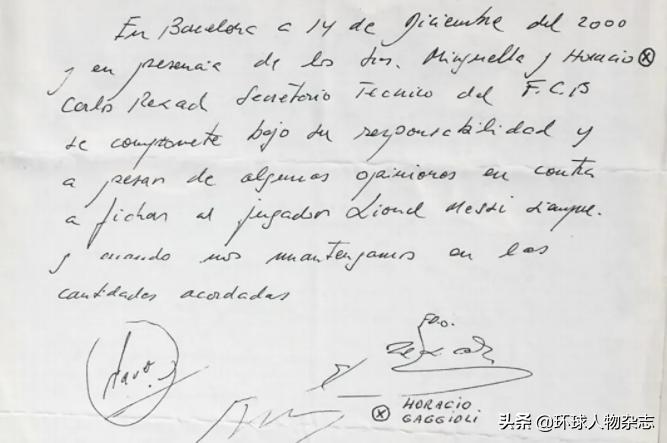 En Barcelona a 14 de Diciembre del 2000
y en presencia de los Srs. Minguella y Horacio ⓧ
Carlos Rexach Secretario Tecnico del F.C.B
se compromete bajo su responsabilidad y
a pesar de algunas opiniones en contra
a fichar al jugador Lionel Messi siempre
y cuando nos mantengamos en las
cantidades acordadas
Fdo.
ⓧ HORACIO
GAGGIOLI
头条 @环球人物杂志